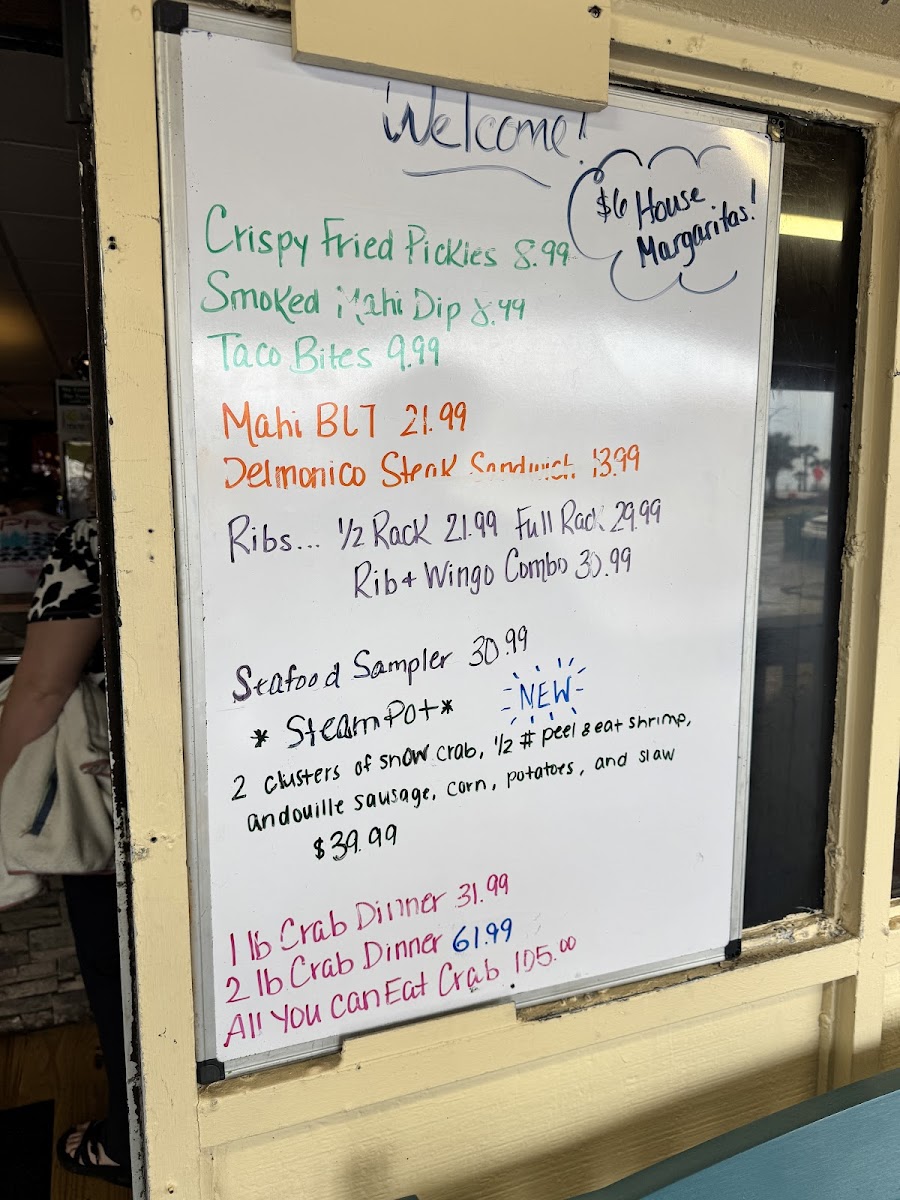 Welcome!
$6 House
Margaritas!
Crispy Fried Pickles 8.99
Smoked Mahi Dip 8.99
Taco Bites 9.99
Mahi BLT 21.99
Delmonico Steak Sandwich 13.99
Ribs... 1/2 Rack 21.99 Full Rack 29.99
Rib + Wingo Combo 30.99
Seafood Sampler 30.99
* Steam Pot *
NEW
2 clusters of snow crab, 1/2 # peel & eat shrimp,
andouille sausage, corn, potatoes, and slaw
$39.99
1 lb Crab Dinner 31.99
2 lb Crab Dinner 61.99
All You Can Eat Crab 105.00